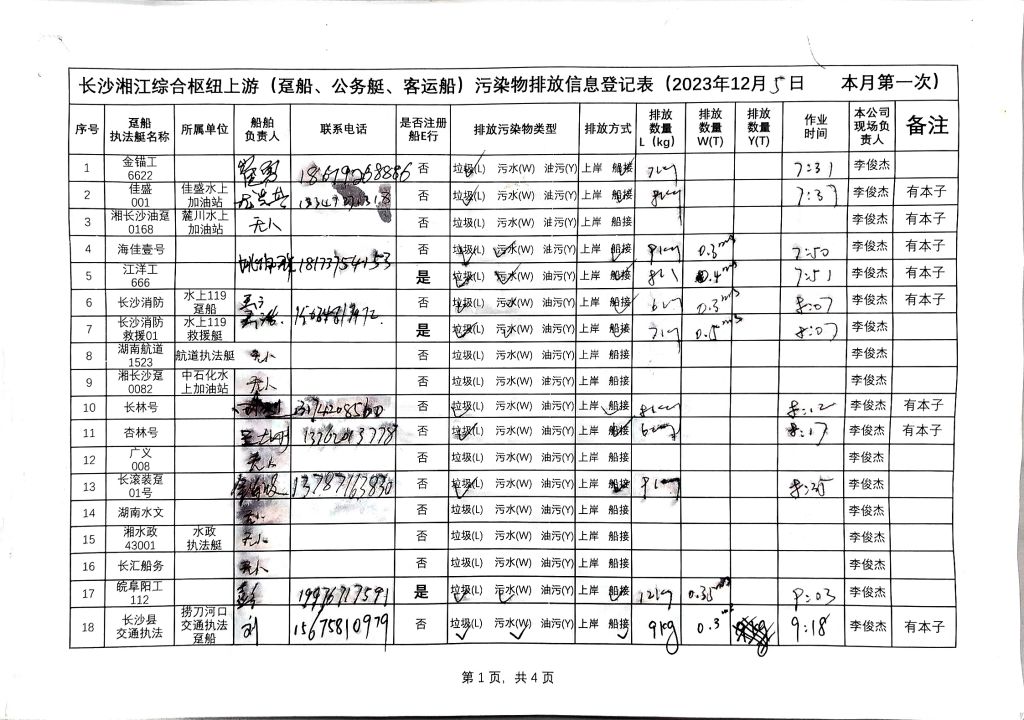 长沙湘江综合枢纽上游（趸船、公务艇、客运船）污染物排放信息登记表（2023年12月5日 本月第一次）
序号 趸船执法艇名称 所属单位 船舶负责人 联系电话 是否注册船E行 排放污染物类型 排放方式 排放数量L（kg） 排放数量W(T) 排放数量Y(T) 作业时间 本公司现场负责人 备注
1 金锚工6622 否 垃圾(L) 污水(W) 油污(Y) 上岸 船接 7kg 7:31 李俊杰
2 佳盛001 佳盛水上加油站 否 垃圾(L) 污水(W) 油污(Y) 上岸 船接 8kg 7:37 李俊杰 有本子
3 湘长沙油趸0168 麓川水上加油站 无人 否 垃圾(L) 污水(W) 油污(Y) 上岸 船接 李俊杰 有本子
4 海佳壹号 否 垃圾(L) 污水(W) 油污(Y) 上岸 船接 9kg 0.3m³ 7:50 李俊杰 有本子
5 江洋工666 18173754153 是 垃圾(L) 污水(W) 油污(Y) 上岸 船接 0.4m³ 7:51 李俊杰 有本子
6 长沙消防 水上119趸船 否 垃圾(L) 污水(W) 油污(Y) 上岸 船接 6kg 0.3m³ 8:07 李俊杰 有本子
7 长沙消防救援01 水上119救援艇 是 垃圾(L) 污水(W) 油污(Y) 上岸 船接 7kg 0.5m³ 8:07 李俊杰
8 湖南航道1523 航道执法艇 无人 否 垃圾(L) 污水(W) 油污(Y) 上岸 船接 李俊杰
9 湘长沙趸0082 中石化水上加油站 无人 否 垃圾(L) 污水(W) 油污(Y) 上岸 船接 李俊杰
10 长林号 否 垃圾(L) 污水(W) 油污(Y) 上岸 船接 8kg 8:12 李俊杰 有本子
11 杏林号 13762013778 否 垃圾(L) 污水(W) 油污(Y) 上岸 船接 6kg 8:17 李俊杰 有本子
12 广义008 无人 否 垃圾(L) 污水(W) 油污(Y) 上岸 船接 李俊杰
13 长滚装趸01号 13787763830 否 垃圾(L) 污水(W) 油污(Y) 上岸 船接 8:35 李俊杰
14 湖南水文 无人 否 垃圾(L) 污水(W) 油污(Y) 上岸 船接 李俊杰
15 湘水政43001 水政执法艇 无人 否 垃圾(L) 污水(W) 油污(Y) 上岸 船接 李俊杰
16 长汇船务 无人 否 垃圾(L) 污水(W) 油污(Y) 上岸 船接 李俊杰
17 皖阜阳工112 19976717591 是 垃圾(L) 污水(W) 油污(Y) 上岸 船接 12kg 0.35m³ 9:03 李俊杰
18 长沙县交通执法 捞刀河口交通执法趸船 刘 15675810979 否 垃圾(L) 污水(W) 油污(Y) 上岸 船接 9kg 0.3m³ 9:18 李俊杰 有本子
第 1 页，共 4 页